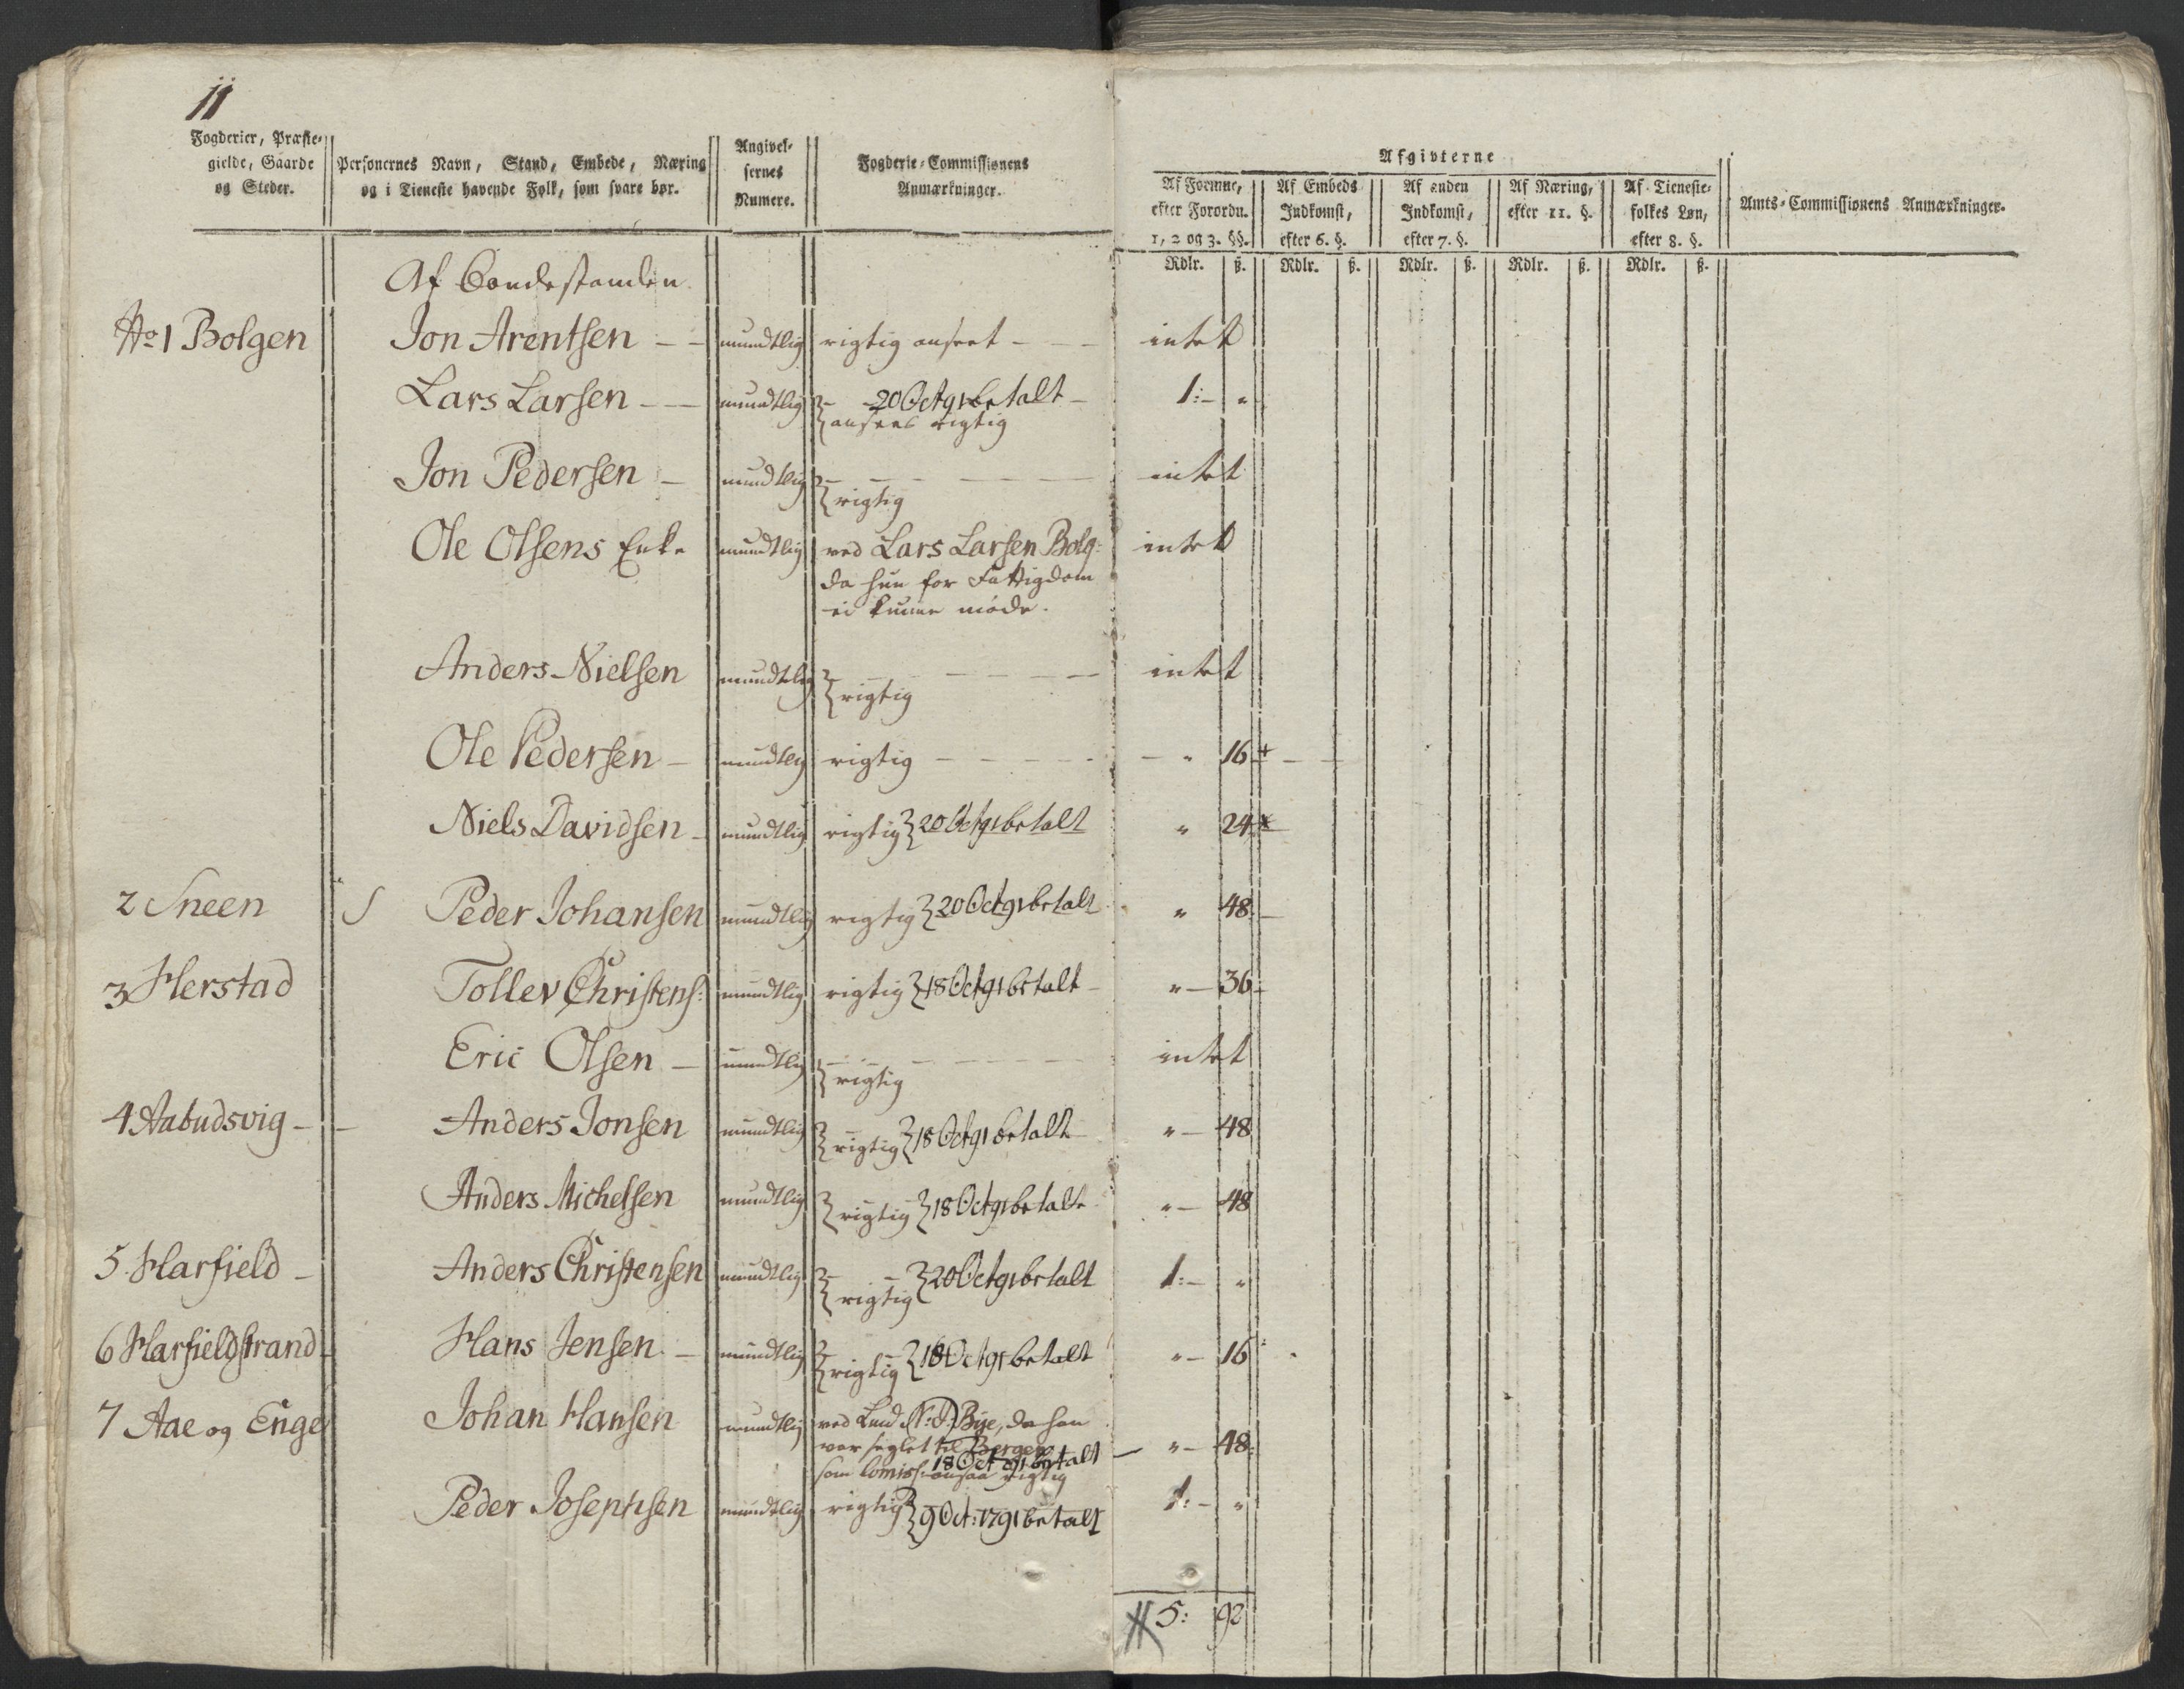 11
Fogderier, Præste-
gielde, Gaarde
og Steder.
Personernes Navn, Stand, Embede, Næring
og i Tieneste havende Folk, som svare bør.
Angivel-
sernes
Numere.
Fogderie-Commissionens
Anmærkninger.
Afgivterne
Af Formue,
efter Forordn.
1, 2 og 3. §§.
Af Embeds
Indkomst,
efter 6. §.
Af anden
Indkomst,
efter 7. §.
Af Næring,
efter 11. §.
Af Tieneste-
folkes Løn,
efter 8. §.
Amts-Commissionens Anmærkninger.
Rdlr. ß. Rdlr. ß. Rdlr. ß. Rdlr. ß. Rdlr. ß.
Af Bondestanden
No 1 Bolgen Jon Arentsen - - mundtlig rigtig anseet - - - intet
Lars Larsen - - mundtlig - 20 Oct 91 betalt - 1:- "
ansees rigtig
Jon Pedersen - mundtlig - - - - - - intet
rigtig
Ole Olsens Enke mundtlig ved Lars Larsen Bolg: intet
da hun for Fattigdom
ei kunne møde.
Anders Nielsen mundtlig - - - - - intet
rigtig
Ole Pedersen - mundtlig rigtig - - - - - - " 16 + - -
Niels Davidsen - mundtlig rigtig 20 Oct 91 betalt " 24 x
2 Sneen Peder Johansen mundtlig rigtig 20 Oct 91 betalt " 48 -
3 Herstad Tollev Christens: mundtlig rigtig 18 Oct 91 betalt - " - 36 -
Eric Olsen - mundtlig - - - - - - intet
rigtig
4 Aabudsvig - - Anders Jonsen mundtlig rigtig 18 Oct 91 betalt - " - 48
Anders Michelsen mundtlig rigtig 18 Oct 91 betalt " - 48
5 Harfield - Anders Christensen mundtlig rigtig 20 Oct 91 betalt 1:- "
6 Harfieldstrand - Hans Jensen - mundtlig rigtig 18 Oct 91 betalt " - 16
7 Aae og Enge Johan Hansen mundtlig ved Lend. N: D: Bye, da han
var seglet til Bergen - " - 48:
18 Oct 91 betalt
som Comiss: ansaae rigtig
Peder Josephsen mundtlig rigtig 9 Oct: 1791 betalt 1:- "
5: 92